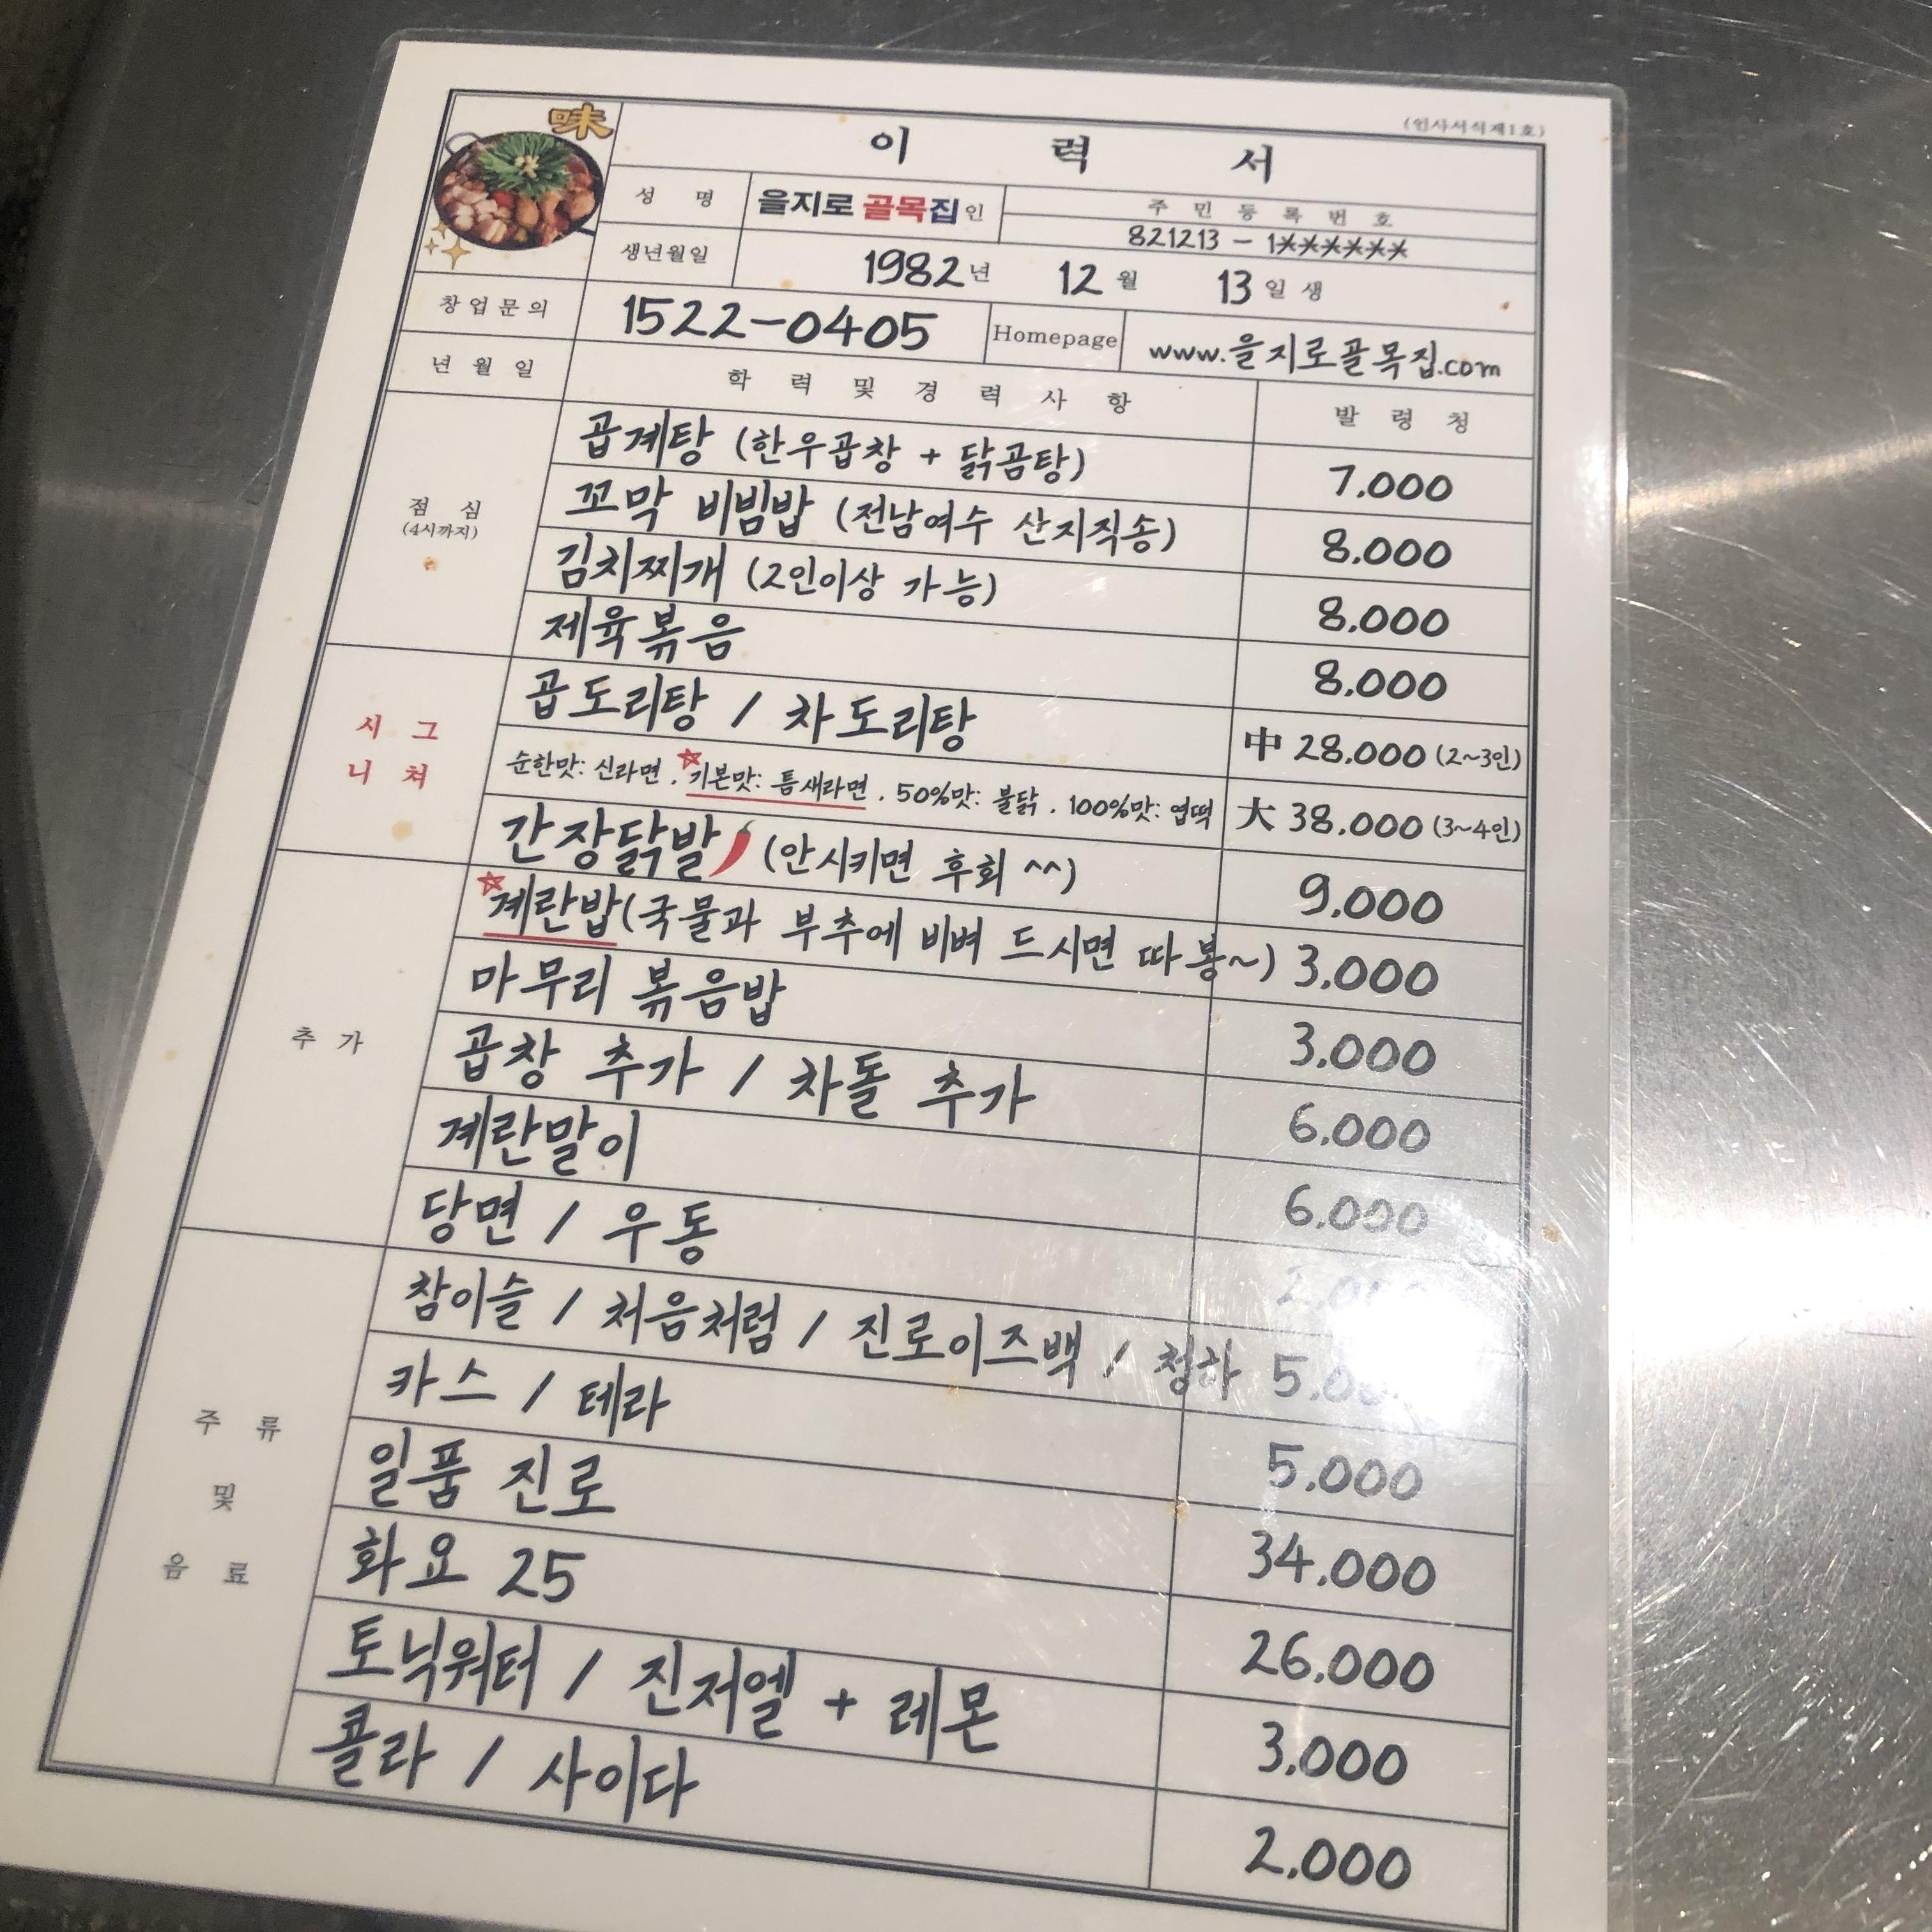 味
(인사서식제1호)
이 력 서
성 명 을지로 골목집 인
주 민 등 록 번 호
821213 - 1******
생년월일 1982년 12월 13일생
창업문의 1522-0405 Homepage www.을지로골목집.com
년 월 일 학 력 및 경 력 사 항 발 령 청
점 심
(4시까지)
곱계탕 (한우곱창 + 닭곰탕) 7,000
꼬막 비빔밥 (전남여수 산지직송) 8,000
김치찌개 (2인이상 가능) 8,000
제육볶음 8,000
시 그
니 쳐
곱도리탕 / 차도리탕 中 28,000 (2~3인)
순한맛: 신라면, 기본맛: 틈새라면, 50%맛: 불닭, 100%맛: 엽떡 大 38,000 (3~4인)
간장닭발 (안시키면 후회 ^^) 9,000
추 가
계란밥(국물과 부추에 비벼 드시면 따봉~) 3,000
마무리 볶음밥 3,000
곱창 추가 / 차돌 추가 6,000
계란말이 6,000
당면 / 우동
주 류
및
음 료
참이슬 / 처음처럼 / 진로이즈백 / 청하
카스 / 테라 5,000
일품 진로 34,000
화요 25 26,000
토닉워터 / 진저엘 + 레몬 3,000
콜라 / 사이다 2,000